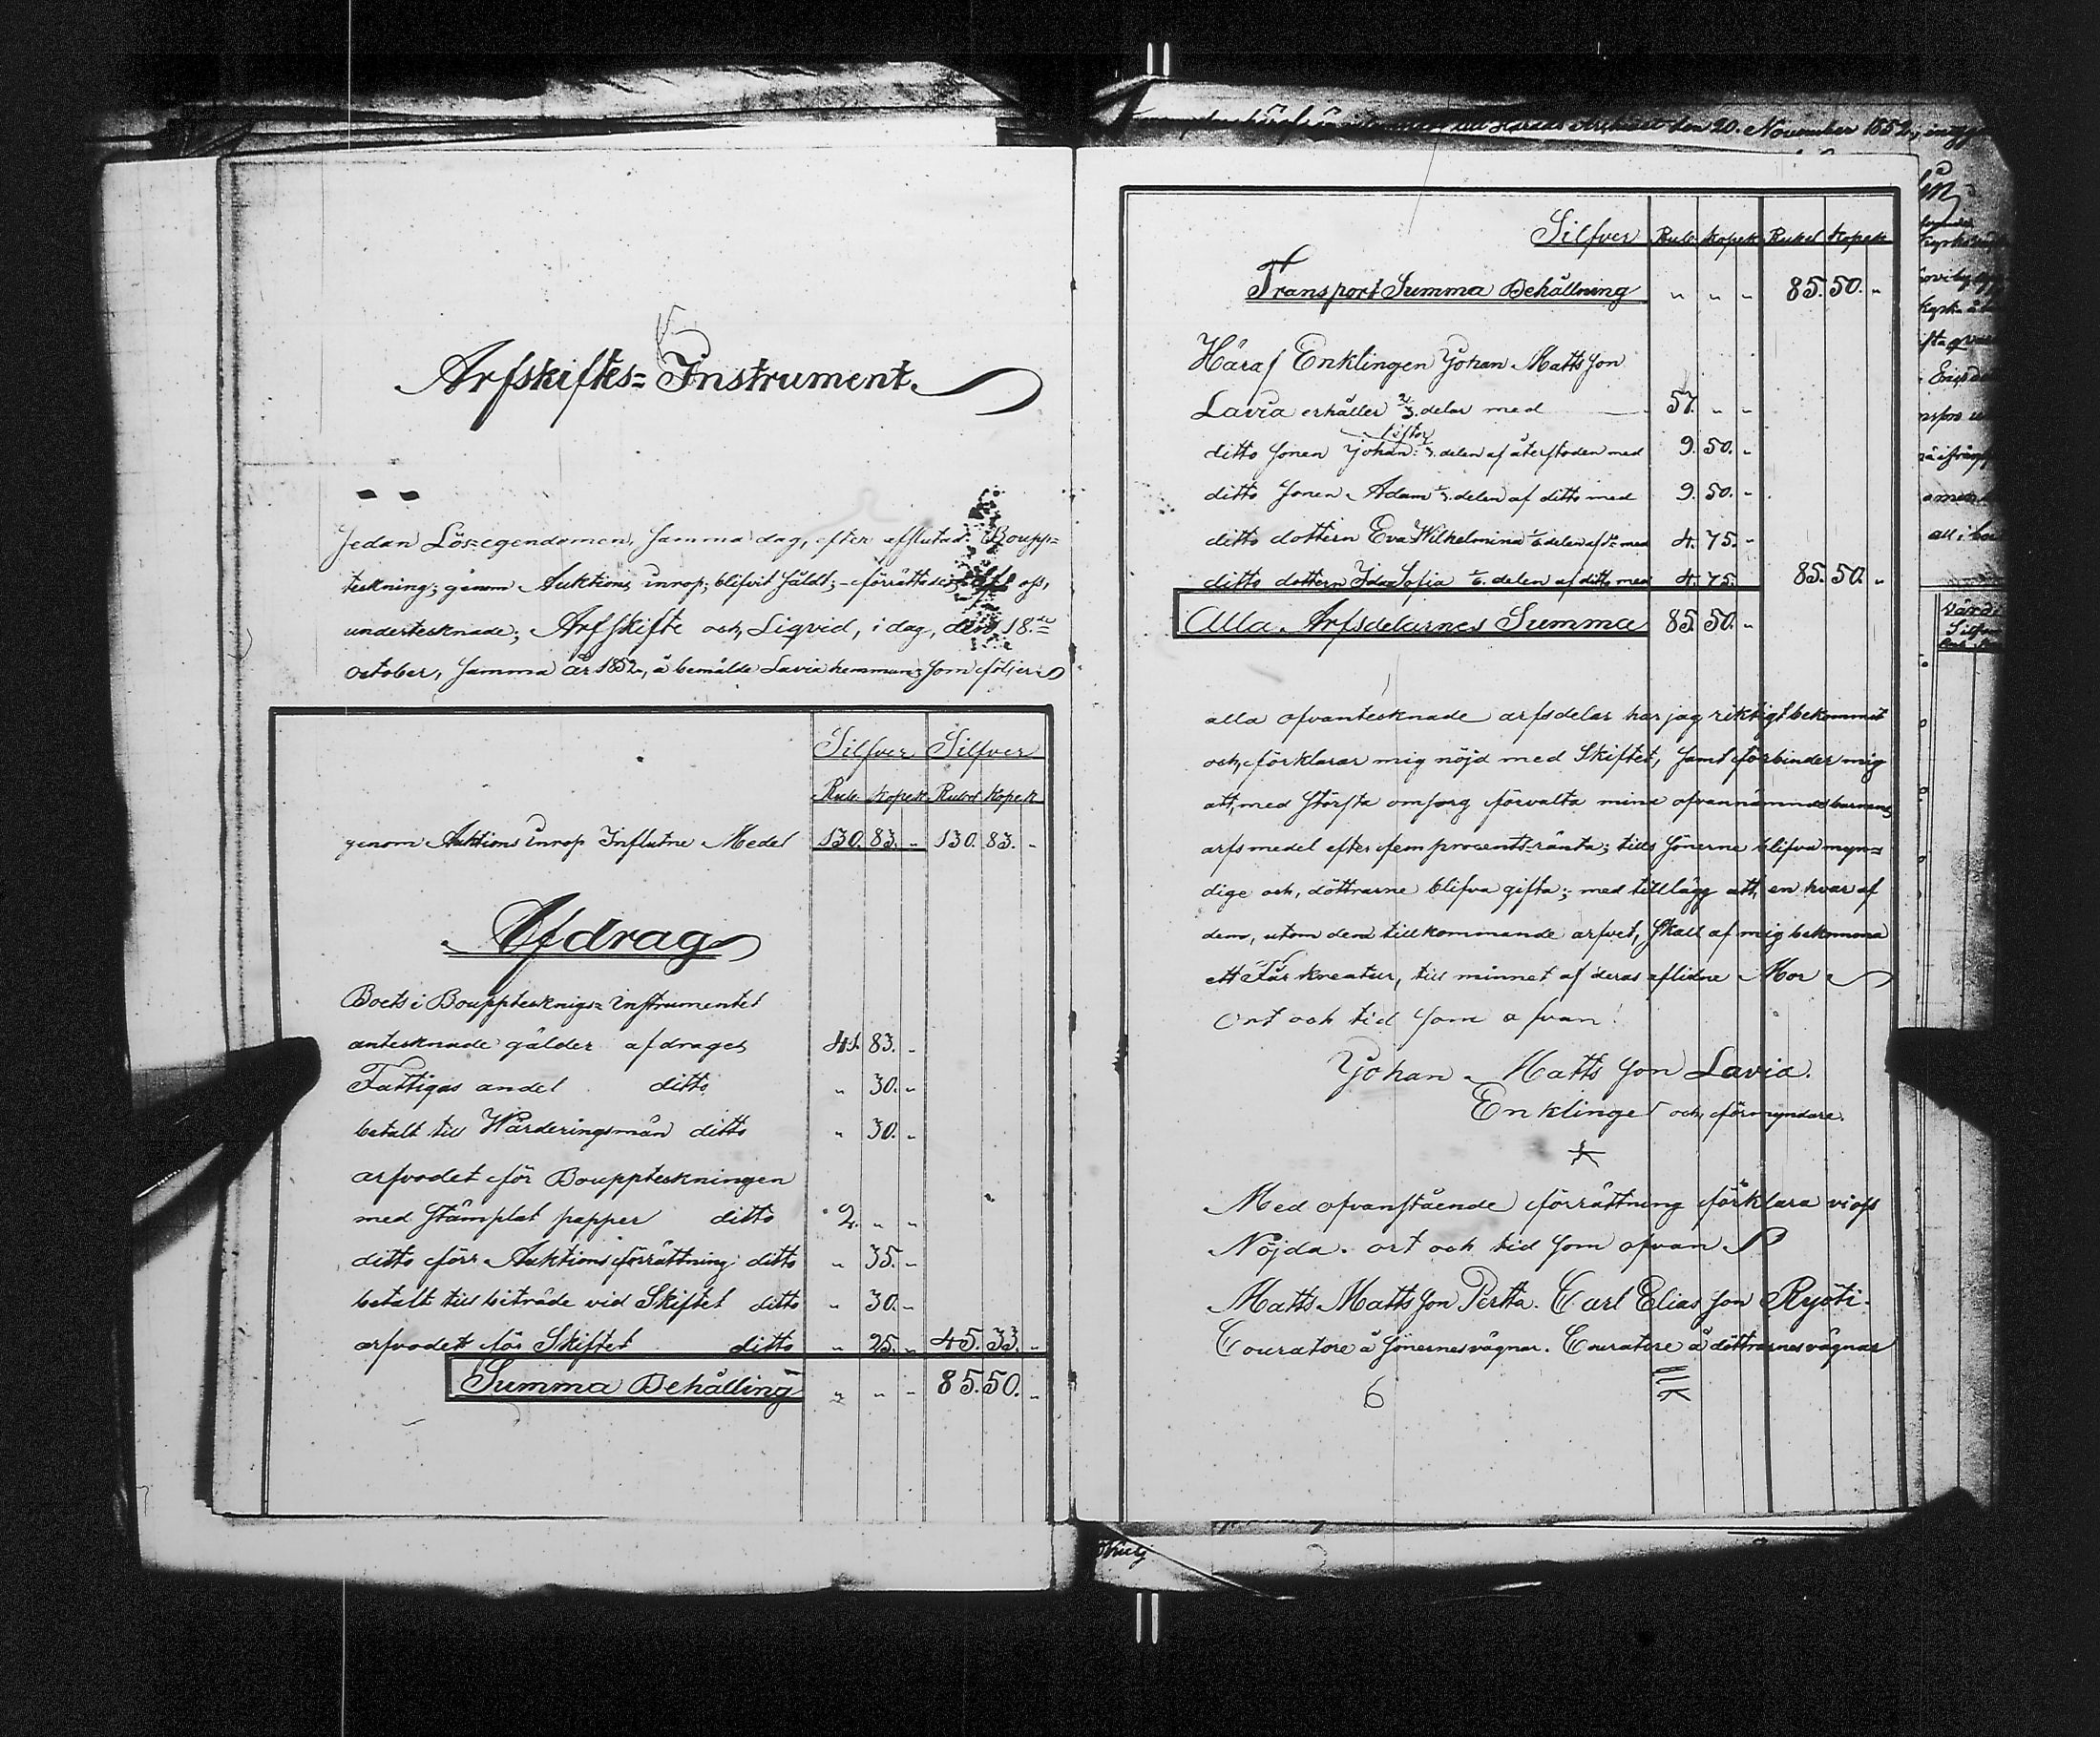 Arfskiftes= Instrument.
Sedan Lös=egendomen, samma dag, efter afslutad Boupp=
teckning; genom Auktions inrop; blifvit såldt; förrättades af oss,
undertecknade; Arfskifte och, Liqvid, i dag, den 18.de
October, samma år 1852, å bemälde Lavia hemman; som följer
Silfver Silfver
Rub. Kopek Rubel Kopek
genom Auktions inrop Influtne Medel 130. 83. " 130. 83. "
Afdrag
Boets i Bouppteknigs= instrumentet
antecknade gälder afdrages 41. 83. "
Fattigas andel ditto " 30. "
betalt till Wärderingsmän ditto " 30. "
arfvodet för Bouppteckningen
med stämplat papper ditto 2. " "
ditto för Auktionsförrättning ditto " 35. "
betalt till biträde vid Skiftet ditto " 30. "
arfvodet för Skiftet ditto " 25. " 45. 33. "
Summa Behålling " " " 85. 50. "
den 20. November 1852,
Silfver Rub. Kopek Rubel Kopek
Transport Summa Behållning " " " 85. 50. "
Häraf Enklingen Johan Mattsson
Lavia erhåller 2/3 delar med 57. " "
ditto sonen Johan 1/3 delen af återstoden med 9. 50. "
ditto sonen Adam 1/3 delen af ditto med 9. 50. "
ditto dottern Eva Wilhelmina 1/6 delen af do med 4. 75. "
ditto dottern Ida Sofia 1/6. delen af ditto med 4. 75. 85. 50. "
Alla Arfsdelarnes Summa 85. 50. "
alla ofvantecknade arfsdelar har jag riktigt bekommit
och, förklarar mig nöjd med Skiftet, samt förbinder mig
att, med största omsorg förvalta mina ofvannämnde barnens
arfsmedel efter fem procents=ränta; tills sönerne blifva myn=
dige och, döttrarne blifva gifta; med tillägg att, en hvar af
dem, utom dem tillkommande arfvet, skall af mig bekomma
ett Får kreatur, till minnet af deras aflidne Mor
Ort och tid som ofvan!
Johan Mattsson Lavia.
Enklinge och, förmyndare.
Med ofvanstående förrättning förklara vi oss
Nöjda. ort och tid som ofvan
Matts Mattsson Pertta. Carl Eliasson Ryöti.
Couratore å sönernes vägnar. Couratore å döttrarnes vägnar
6